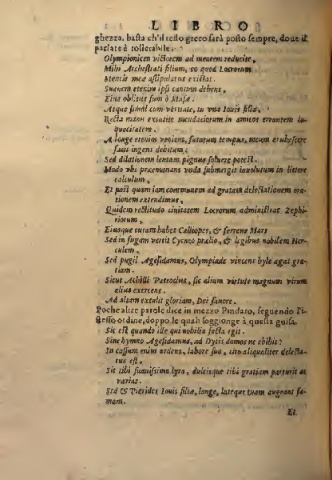 LIBRO
ghezza. basta ch'il resto greco sarà posto sempre, doue il
parlare è tollerabile.
Olympionicen victorem ad mentem reducite,
Mihi Archestrati filium, eo quod Locrorum
Mentis meæ astipulatus existat.
Suauem etenim ipsi cantum debens,
Eius oblitus sum ô Musa.
Atque simul cum veritate, tu quæ Iouis filia,
Recta manu excutite mendaciorum in amicos errantem in-
A longe etenim veniens, futurum tempus, meum erubescere
facit ingens debitum:
Sed dilationem lentam, pignus soluere potest.
Modo vbi præemanans vnda submerget inuolutum in littere
calculum.
Et pòst quem iam communem ad gratam delectationem ora-
tionem extendimus.
Quidem rectitudo ciuitatem Locrorum administrat Zephi-
riorum.
Eiusque curam habet Calliopes, & ferreus Mars
Sed in fugam vertit Cycneo prælio, & legibus nobilem Her-
culem.
Sed pugil Agesidamus, Olympiade vincens Hylæ agat gra-
tiam.
Sicut Achilli Patroclus, sic alium virtute magnum virum
alius exercens.
Ad altam extulit gloriam, Dei fauore.
Poche altre parole dice in mezzo Pindaro, seguendo l'i-
stesso ordine, doppo le quali soggionge à questa guisa.
Sic est quando ille qui nobilia facta egit.
Sine hymno Agesidamus, ad Dytis domos ne abibis:
In cassum enim ardens, labore suo, cito aliqualiter delecta-
tus est.
Sit tibi suauissima lyra, dulcisque tibi gratiam parturit ac
varias.
Sed & Pierides Iouis filiæ, longe, lateque tuam augeant fa-
mam.
Et